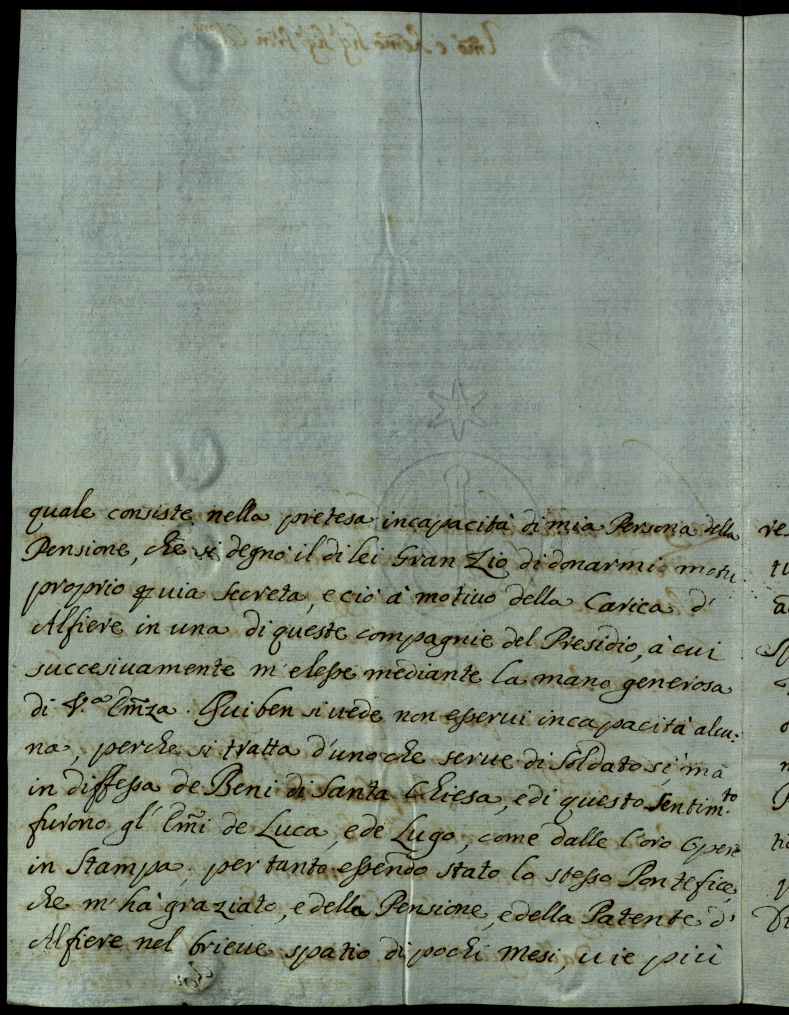 quale consiste nella pretesa incapacità di mia Persona della
Pensione, che si degnò il di lei Gran Zio di donarmi motu
proprio quia secreta, e ciò à motivo della Carica d'
Alfiere in una di queste compagnie del Presidio, à cui
succesivamente m'elesse mediante la mano generosa
di V.ª Em̃za. Qui ben si vede non esservi incapacità alcu:
na, perche si tratta d'uno che serve di soldato sì mà
in diffesa de Beni di Santa Chiesa, e di questo sentim.to
furono gl' Em̃i de Luca, e de Lugo, come dalle loro Opere
in Stampa; per tanto essendo stato lo stesso Pontefice,
che m'hà graziato, e della Pensione, e della Patente d'
Alfiere nel brieve spatio di pochi Mesi, vie più